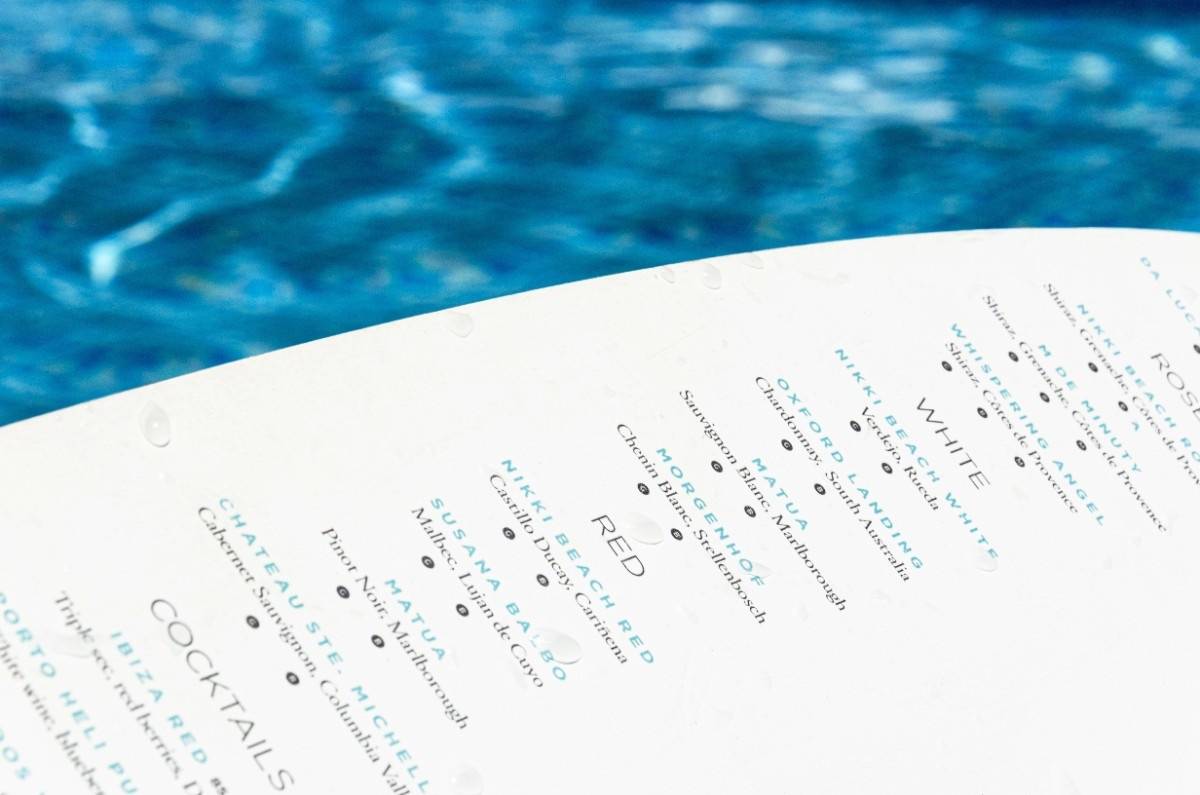 DA LUCA
ROSÉ
NIKKI BEACH RO
Shiraz, Grenache, Côtes de Pro
M DE MINUTY
Shiraz, Grenache, Côtes de Provence
WHISPERING ANGEL
Shiraz, Côtes de Provence
WHITE
NIKKI BEACH WHITE
Verdejo, Rueda
OXFORD LANDING
Chardonnay, South Australia
MATUA
Sauvignon Blanc, Marlborough
MORGENHOF
Chenin Blanc, Stellenbosch
RED
NIKKI BEACH RED
Castillo Ducay, Cariñena
SUSANA BALBO
Malbec, Lujan de Cuyo
MATUA
Pinot Noir, Marlborough
CHATEAU STE. MICHELL
Cabernet Sauvignon, Columbia Vall
COCKTAILS
IBIZA RED
Triple sec, red berries, D
PORTO HELI PU
White wine, blueber